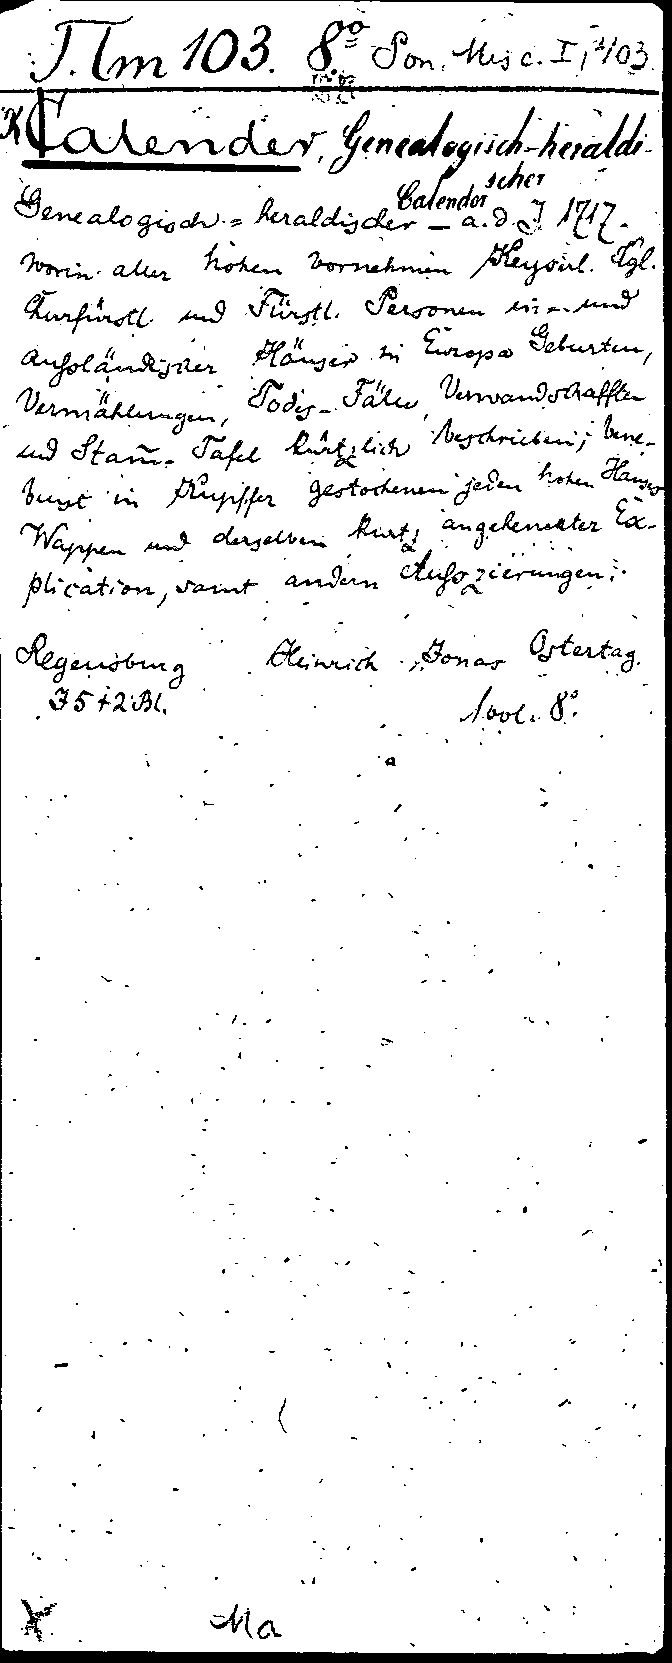 J. Im 103. 8° Son. Misc. I, 2/03.
K Calender, Genealogisch-heraldi-
scher
Genealogisch-heraldischer Calender – a. d. J. 1717.
worin aller hohen vornehmen Keyserl. Kgl.
Churfürstl. und Fürstl. Personen in- und
ausländischer Häuser in Europa Geburten,
Vermählungen, Todes-Fälle, Verwandschafften
und Stam̅-Tafel kürtzlich beschrieben; bene-
benst in Kupffer gestochenem jeden hohen Hauses
Wappen und derselben kurtz angehenckter Ex-
plication, samt andern Auszierungen.
Regensburg Heinrich Jonas Ostertag.
75+2 Bl. 1 vol. 8°.
Ma